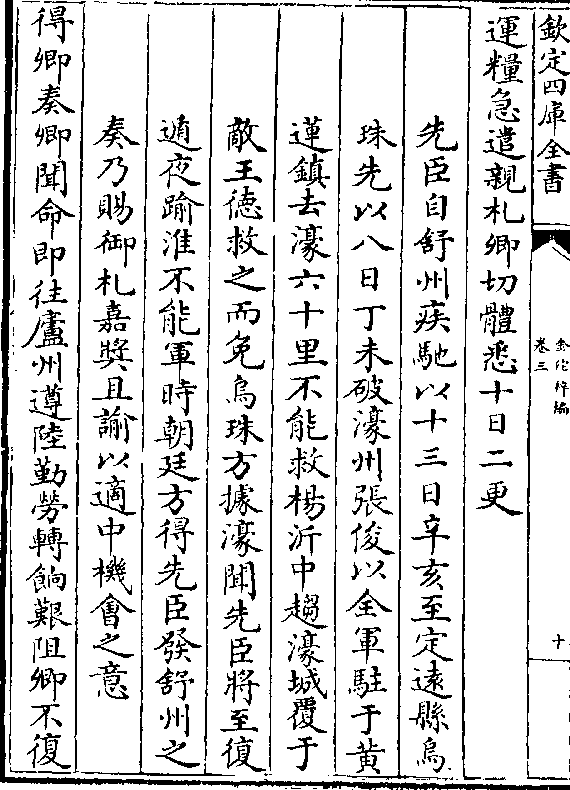 欽定四庫全書
金佗稡編
卷三
十
運糧急遣親札卿切體悉十日二更
先臣自舒州疾馳以十三日辛亥至定遠縣烏
珠先以八日丁未破濠州張俊以全軍駐于黄
蓮鎮去濠六十里不能救楊沂中趨濠城覆于
敵王徳救之而免烏珠方據濠聞先臣將至復
遁夜踰淮不能軍時朝廷方得先臣發舒州之
奏乃賜御札嘉奬且諭以適中機㑹之意
得卿奏卿聞命即往廬州遵陸勤勞轉餉艱阻卿不復